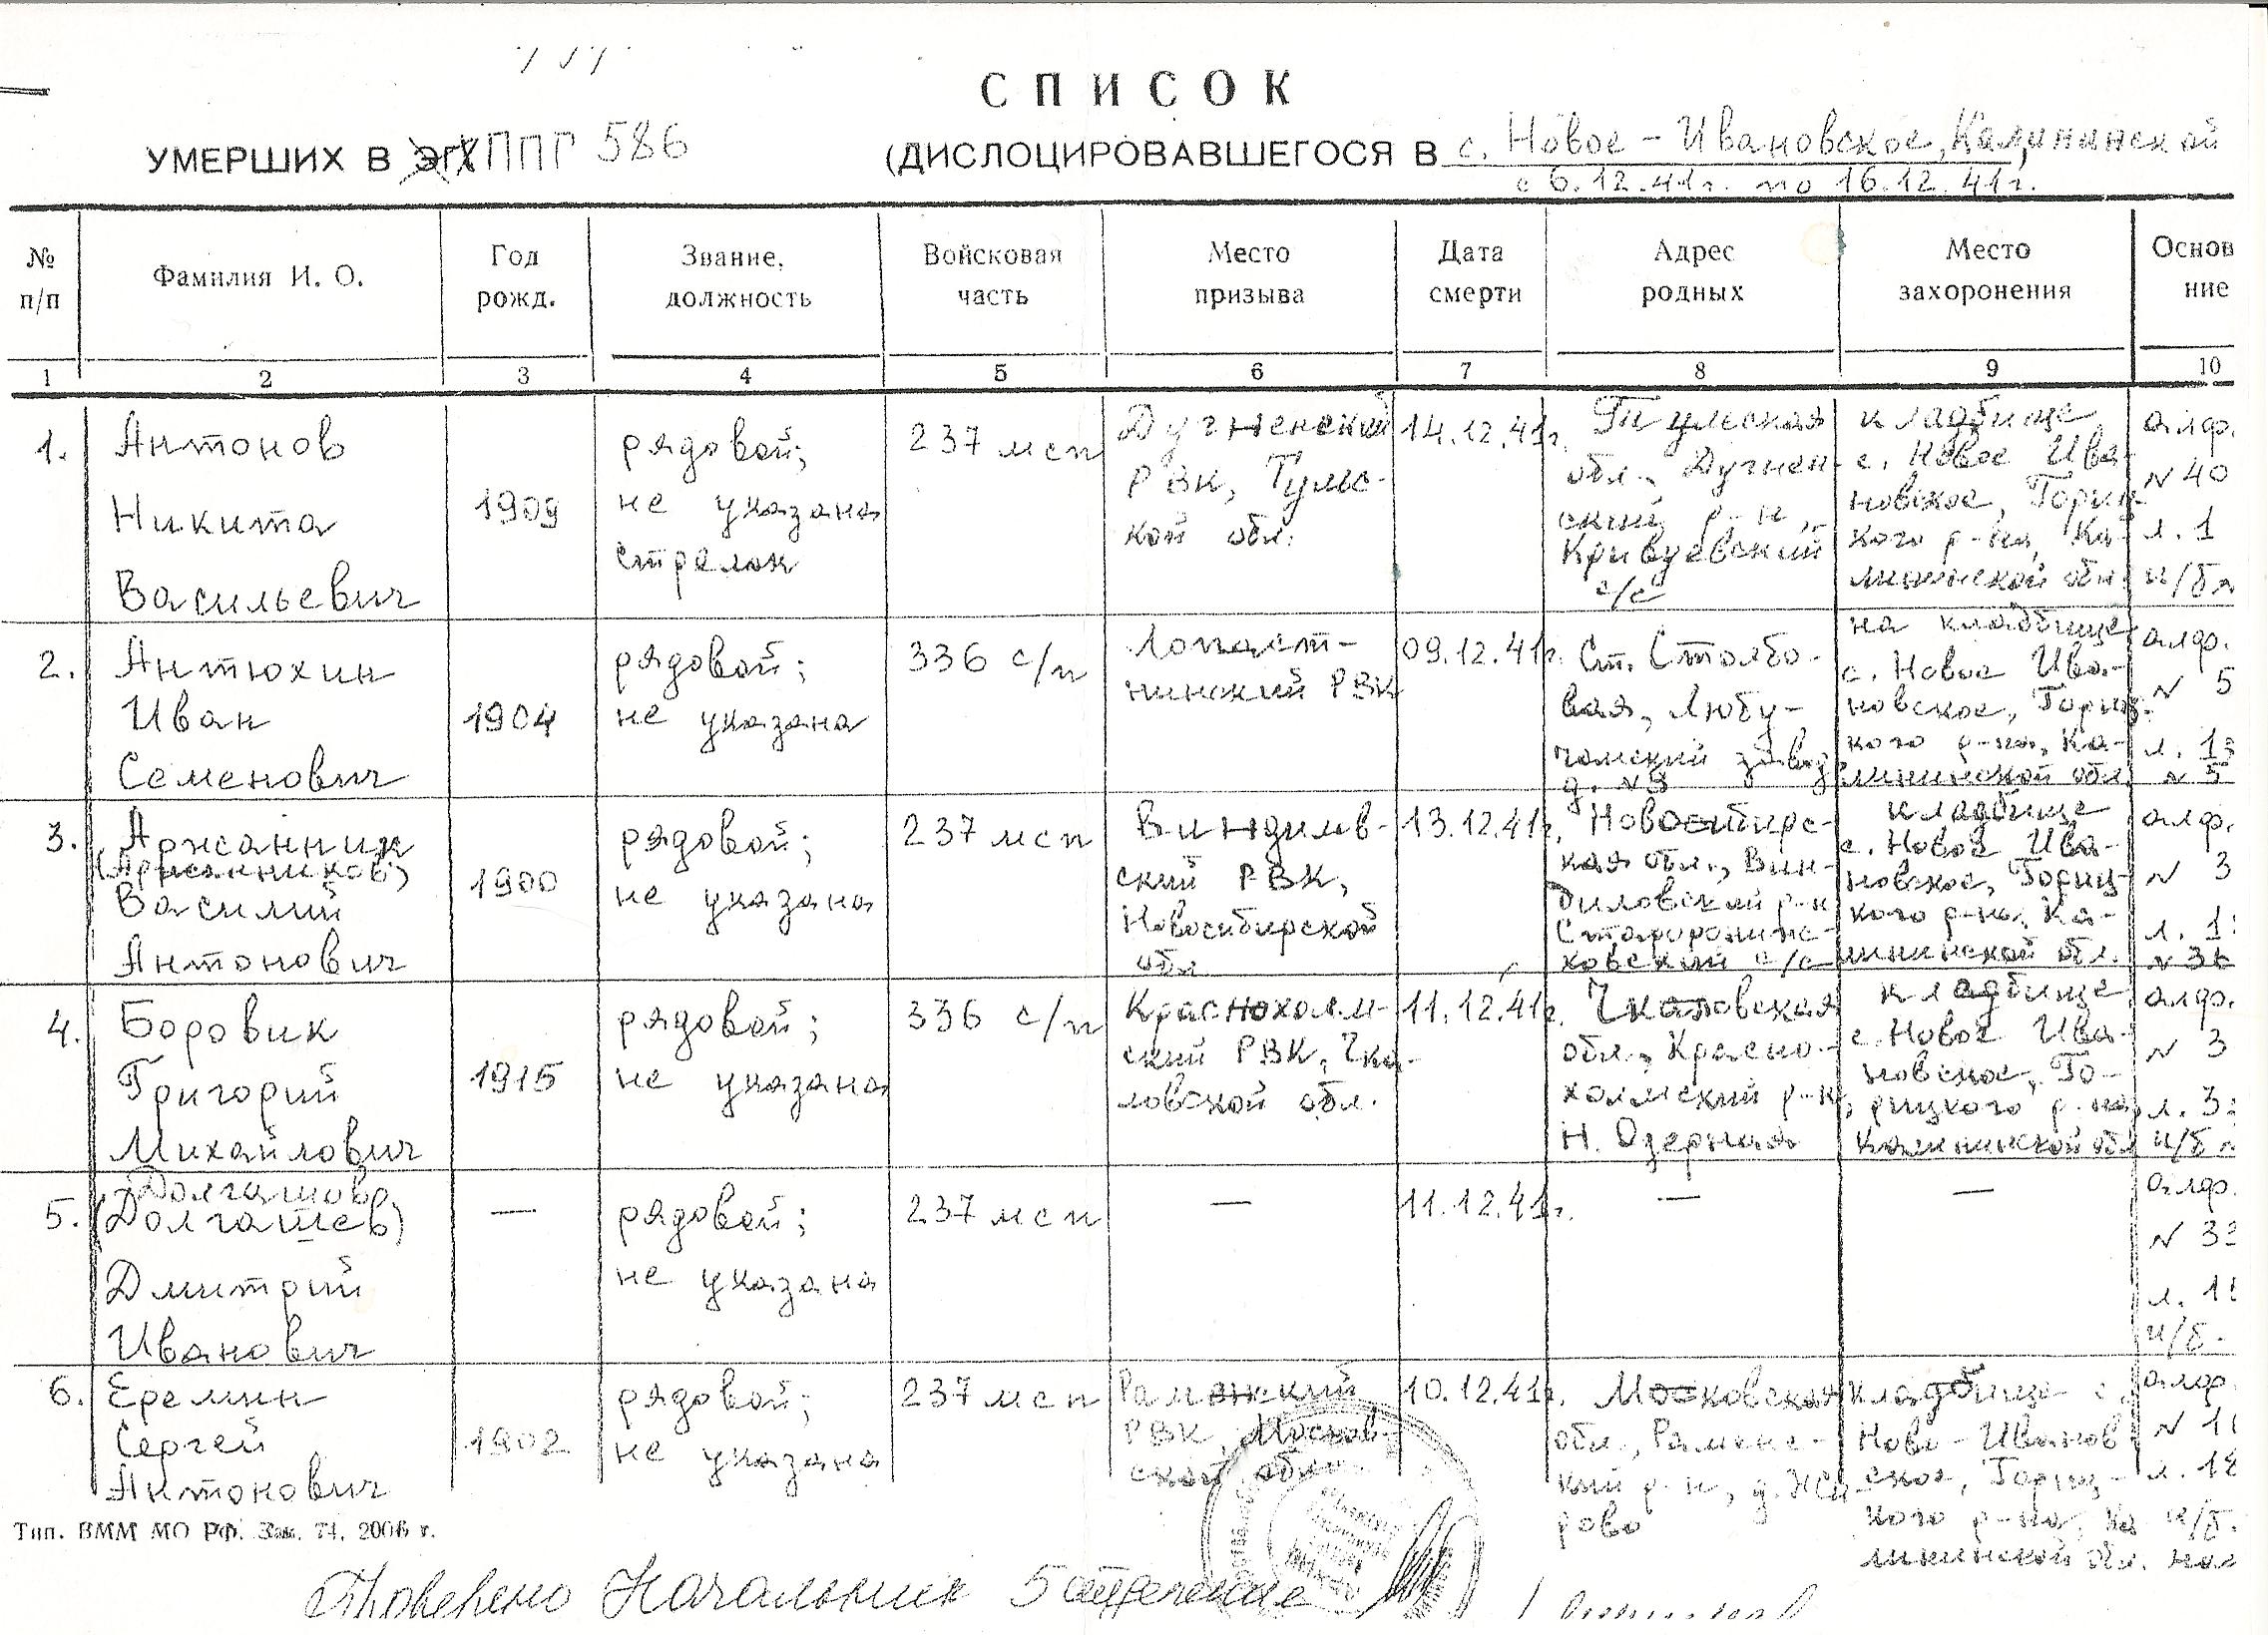 СПИСОК
УМЕРШИХ В ЭГ ХППГ 586 (ДИСЛОЦИРОВАВШЕГОСЯ В с. Новое - Ивановское, Калининской
с 6.12.41г. по 16.12.41г.
№ п/п
Фамилия И. О.
Год рожд.
Звание, должность
Войсковая часть
Место призыва
Дата смерти
Адрес родных
Место захоронения
Основ
ние
1 2 3 4 5 6 7 8 9 10
1.
Антонов
Никита
Васильевич
1909
рядовой;
не указана
стрелок
237 мсп
Дугненский
РВК, Тульс-
кой обл.
14.12.41г.
Тульская
обл., Дугнен-
ский р-н,
Кривуевский
с/с
кладбище
с. Новое Ива-
новское, Гориц-
кого р-на, Ка-
лининской обл.
алф.
№ 40
л. 1
и/б
2.
Антюхин
Иван
Семенович
1904
рядовой;
не указана
336 с/п
Лопаст-
нинский РВК
09.12.41г.
Ст. Столбо-
вая, Любу-
чанский завод
д. №3
на кладбище
с. Новое Ива-
новское, Гориц-
кого р-на, Ка-
лининской обл.
алф.
№ 5
л. 1
№ 5
3.
Аржанник
(Аржанников)
Василий
Антонович
1900
рядовой;
не указана
237 мсп
Виндилов-
ский РВК,
Новосибирской
обл
13.12.41г.
Новосибирс-
кая обл., Вин-
диловский р-н
с/с
кладбище
с. Новое Ива-
новское, Гориц-
кого р-на, Ка-
лининской обл.
алф.
№ 3
л. 1
№ 36
4.
Боровик
Григорий
Михайлович
1915
рядовой;
не указана
336 с/п
Краснохолм-
ский РВК, Чка-
ловской обл.
11.12.41г.
Чкаловская
обл., Красно-
холмский р-н,
Н. Озерная
кладбище
с. Новое Ива-
новское, Го-
рицкого р-на,
Калининской обл
алф.
№ 3
л. 3
и/б
5.
Долгашов
(Долгашев)
Дмитрий
Иванович
—
рядовой;
не указана
237 мсп
—
11.12.41г.
—
—
алф.
№ 33
л. 1
и/б.
6.
Еремин
Сергей
Антонович
1902
рядовой;
не указана
237 мсп
Раменский
РВК, Москов-
ской обл.
10.12.41г.
Московская
обл., Раменс-
кий р-н, д.
рово
кладбище с.
Ново-Иванов
ское, Гориц-
кого р-на, Ка
лининской обл.
алф.
№ 1
л. 18
и/б.
Тип. ВММ МО РФ. Зак. 71. 2006 г.
Проверено Начальник 5 отделения